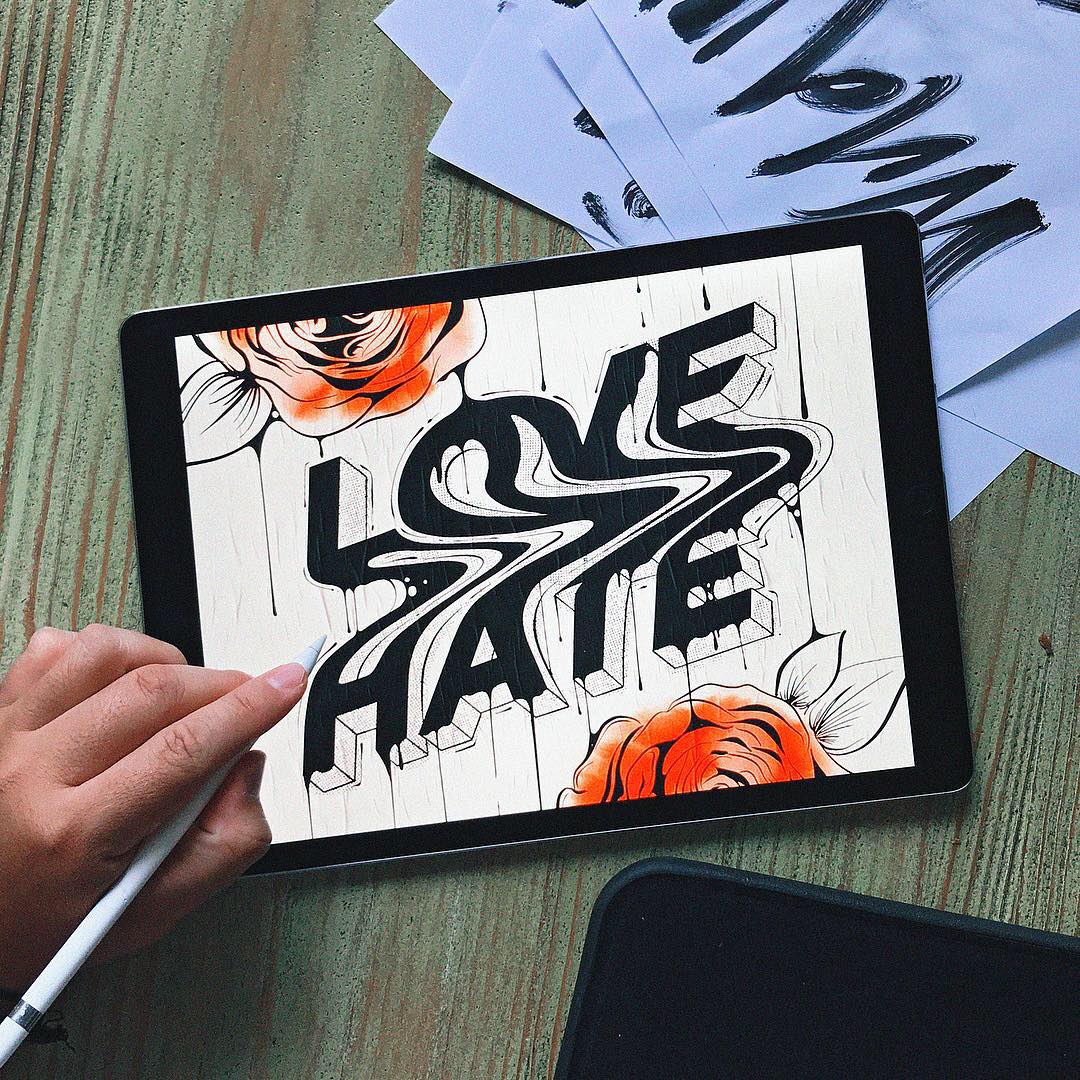 LOVE
HATE